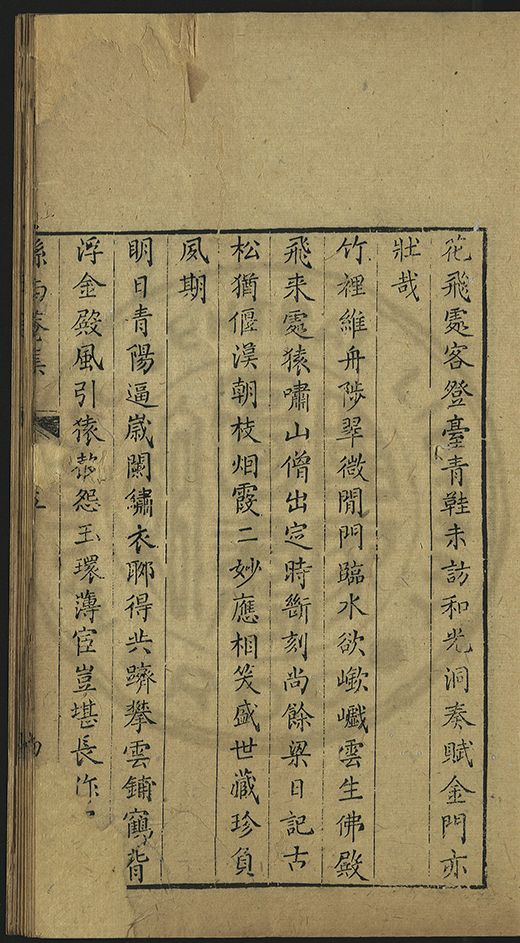 花飛處客登臺青鞋未訪和光洞奏賦金門亦
壯哉
竹裡維舟陟翠微閒門臨水欲嶔巇雲生佛殿
飛来處猿嘯山僧出定時斷刻尚餘梁日記古
松猶偃漢朝枝烟霞二妙應相笑盛世藏珍負
夙期
明日青陽逼嵗闌繡衣聊得共躋攀雲鋪鶴背
浮金殿風引猿聲怨玉環薄宦豈堪長作